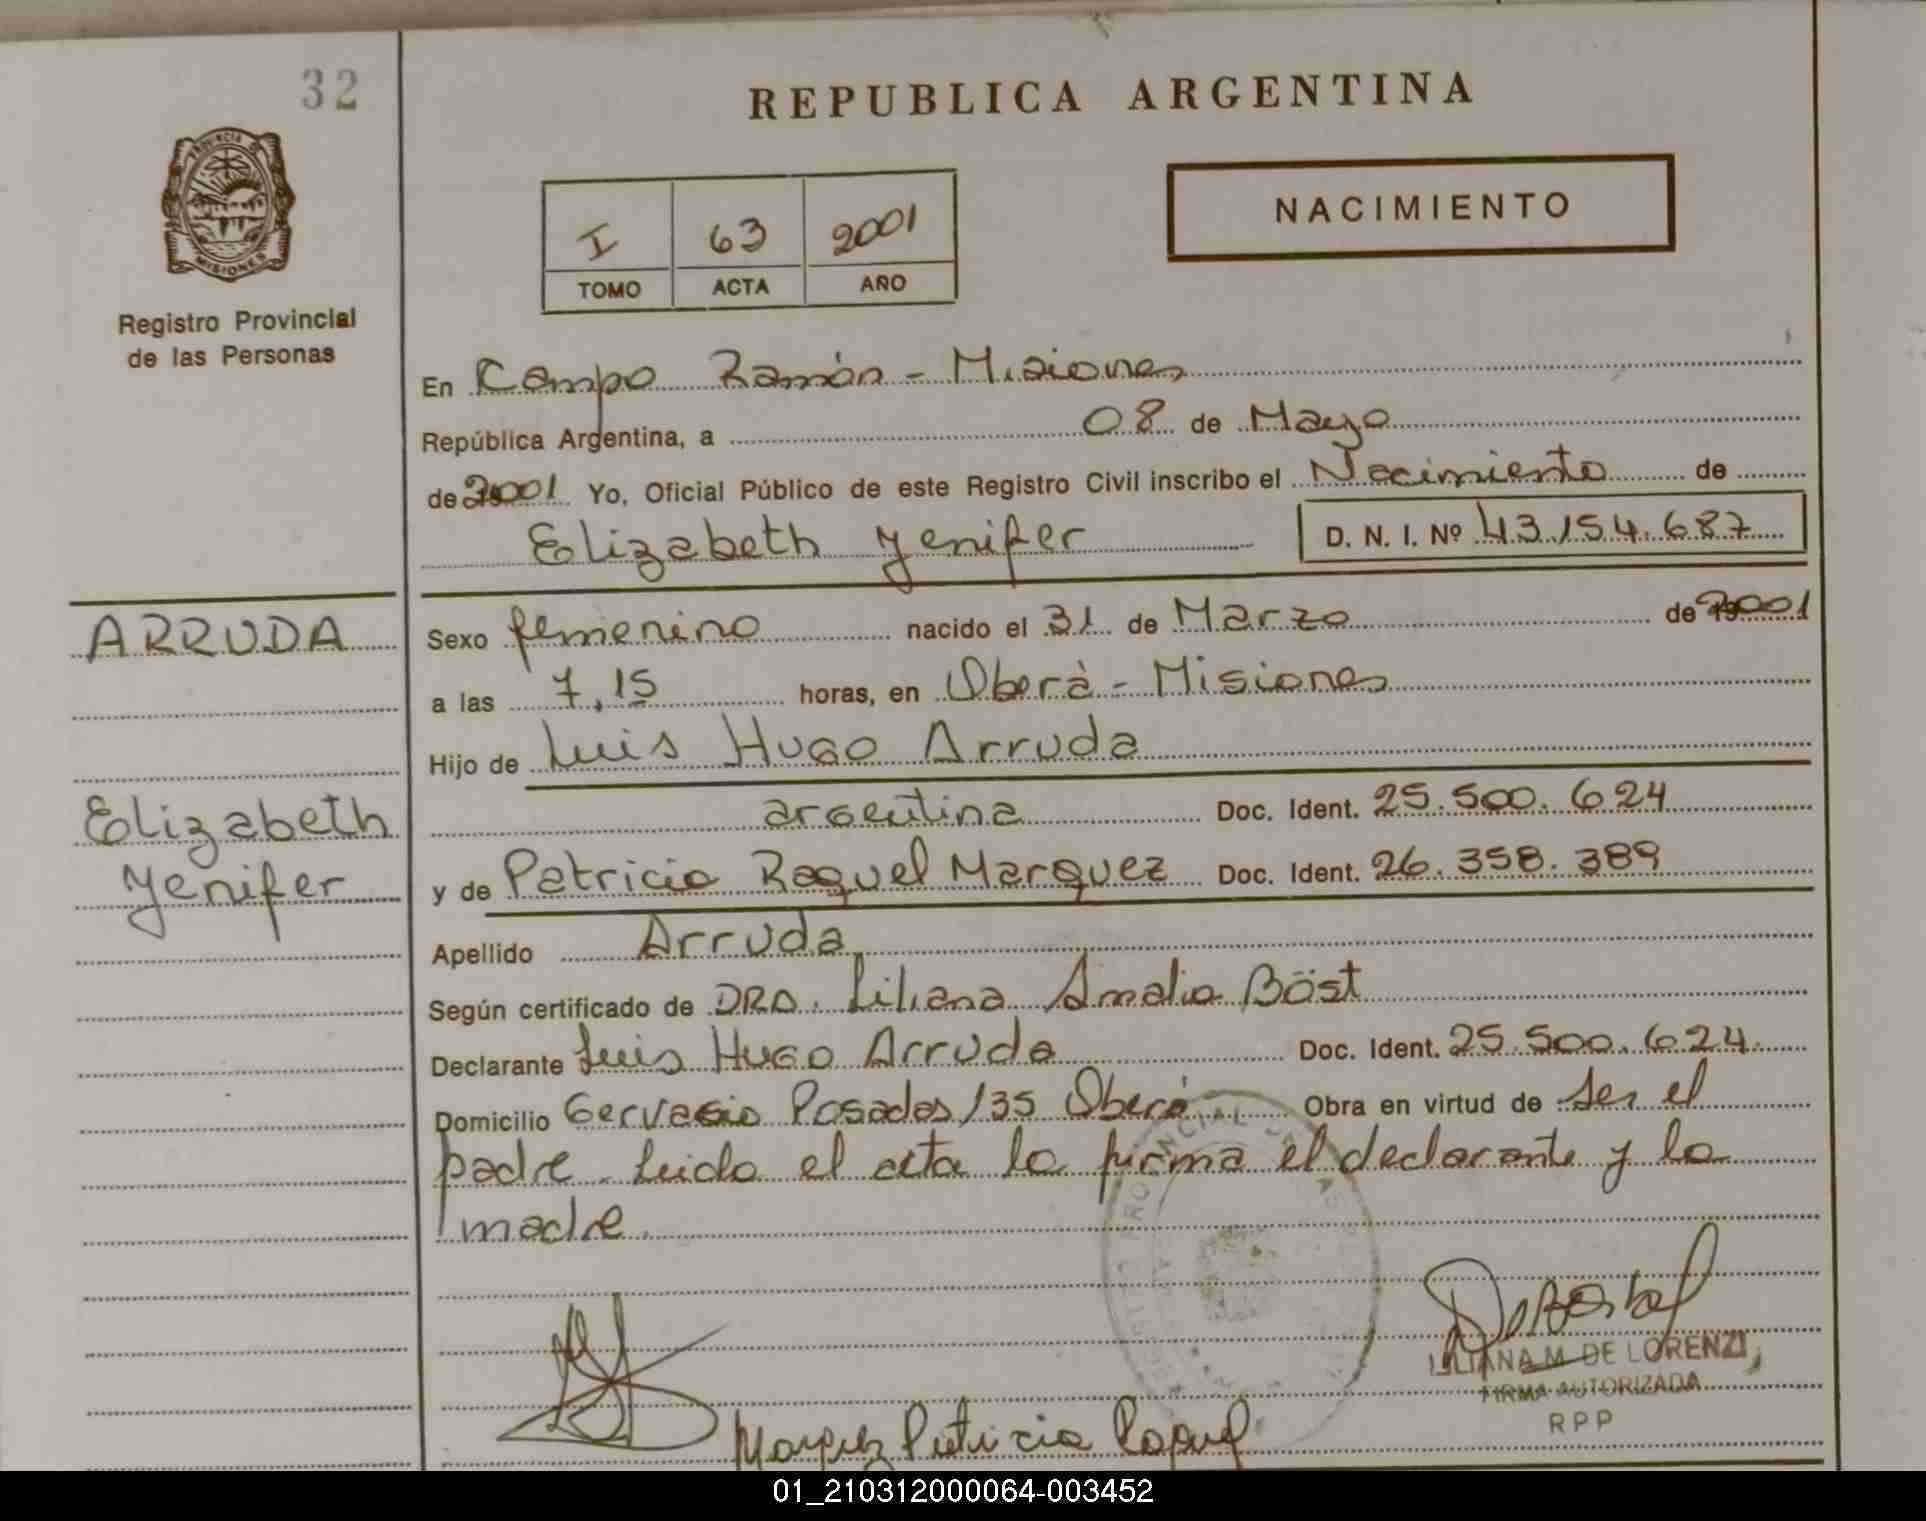 32
REPUBLICA ARGENTINA
PROVINCIA DE
MISIONES
Registro Provincial
de las Personas
I 63 2001
TOMO ACTA AÑO
NACIMIENTO
En Campo Ramón - Misiones
República Argentina, a 08 de Mayo
de 2001 Yo, Oficial Público de este Registro Civil inscribo el Nacimiento de
Elizabeth Yenifer D. N. I. Nº 43.154.687
ARRUDA
Elizabeth
Yenifer
Sexo femenino nacido el 31 de Marzo de 2001
a las 7,15 horas, en Oberà - Misiones
Hijo de Luis Hugo Arruda
argentina Doc. Ident. 25.500.624
y de Patricia Raquel Marquez Doc. Ident. 26.358.389
Apellido Arruda
Según certificado de DRA. Liliana Amalia Böst
Declarante Luis Hugo Arruda Doc. Ident. 25.500.624
Domicilio Gervasio Posadas 135 Oberá Obra en virtud de ser el
padre. Leida el acta la firma el declarante y la
madre.
PROVINCIAL DE LAS
LILIANA M. DE LORENZI
FIRMA AUTORIZADA
RPP
Marquez Patricia Raquel
01_210312000064-003452